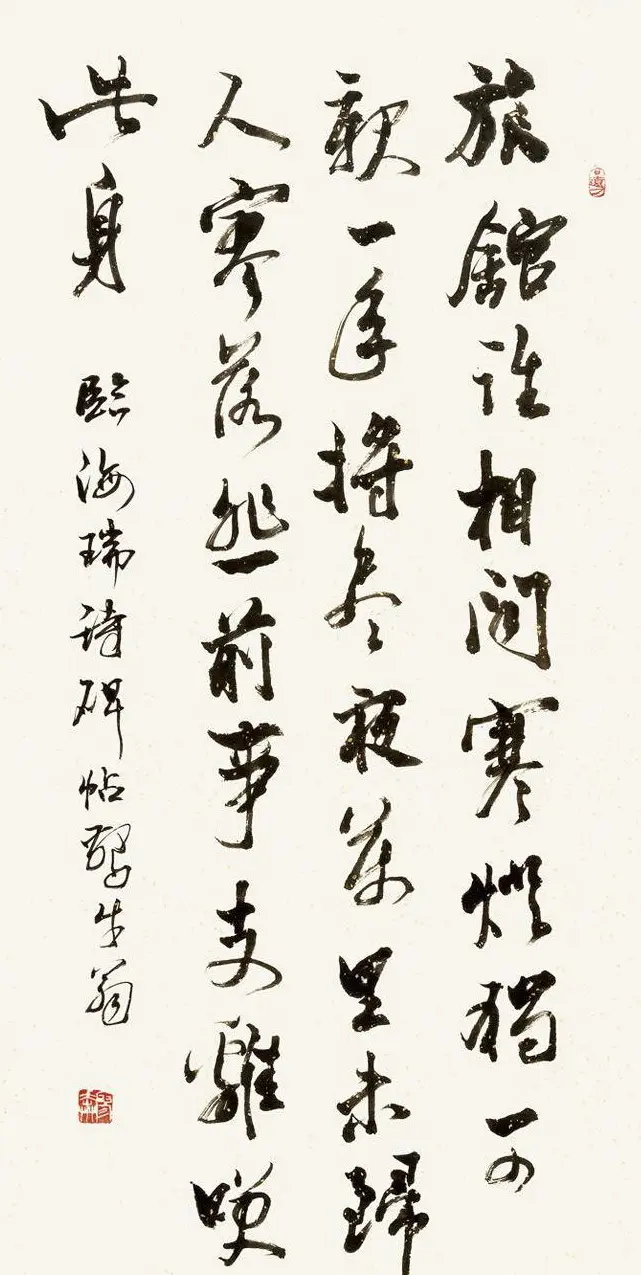 旅館誰相問寒燈獨可
親一年將盡夜萬里未歸
人寥落悲前事支離咲
此身
臨海瑞詩碑帖 翁